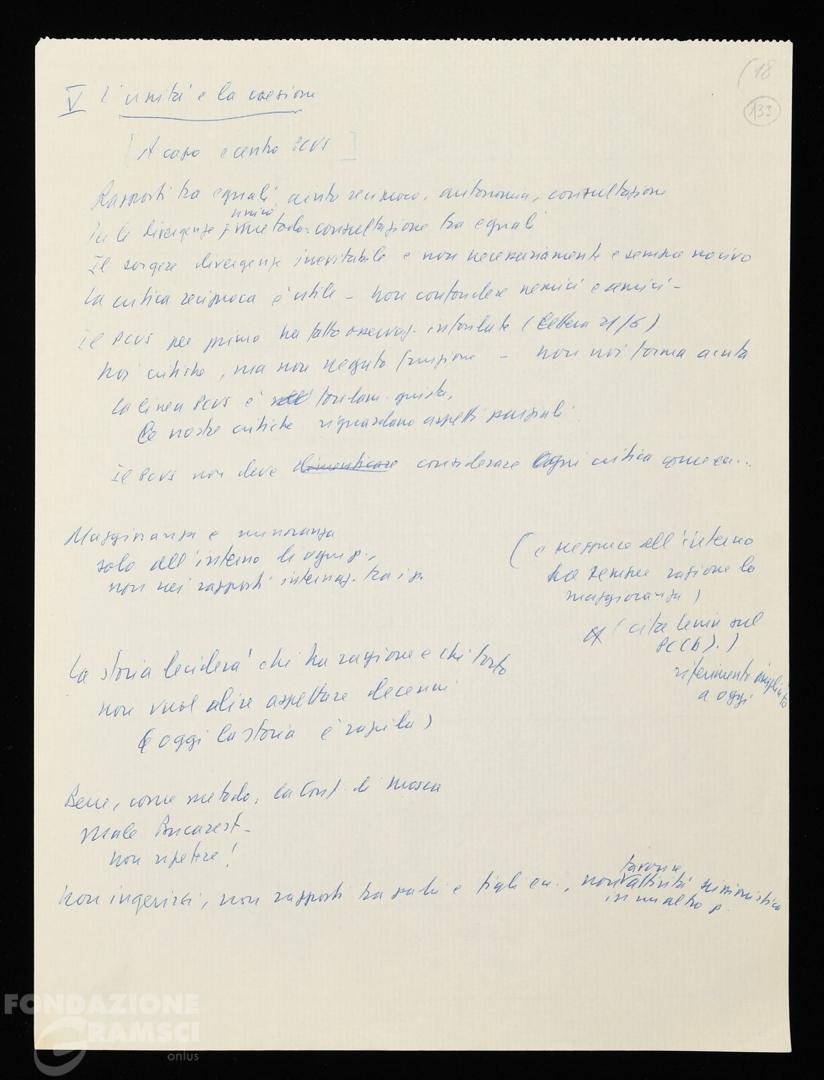 (18
133
V L'unità e la coesione
[A capo e centro PCUS]
Rapporti tra eguali, aiuto reciproco, autonomia, consultazione
Per le divergenze, unico metodo: consultazione tra eguali
Il sorgere divergenze inevitabile e non necessariamente e sempre nocivo
La critica reciproca è utile – non confondere nemici e amici –
Il PCUS per primo ha fatto osservaz. infondate (Lettera 21/6)
Noi critiche, ma non negato funzione – non noi forma aiuto
La linea PCUS è giusta,
Le nostre critiche riguardano aspetti parziali
Il PCUS non deve dimenticare considerare ogni critica come
Maggioranza e minoranza
solo all'interno di ogni p.,
non nei rapporti internaz. tra i p.
(e neppure all'interno
ha sempre ragione la
maggioranza)
(cita Lenin sul
PC(b).)
riferimento implicito
a oggi
La storia deciderà chi ha ragione e chi torto
non vuol dire aspettare decenni
(oggi la storia è rapida)
Bene, come metodo, la Conf. di Mosca
Male Bucarest –
Non ripetere!
Non ingerirsi, non rapporti tra padri e figli ecc., non attività scissionistica
in un altro p.
FONDAZIONE
GRAMSCI
onlus